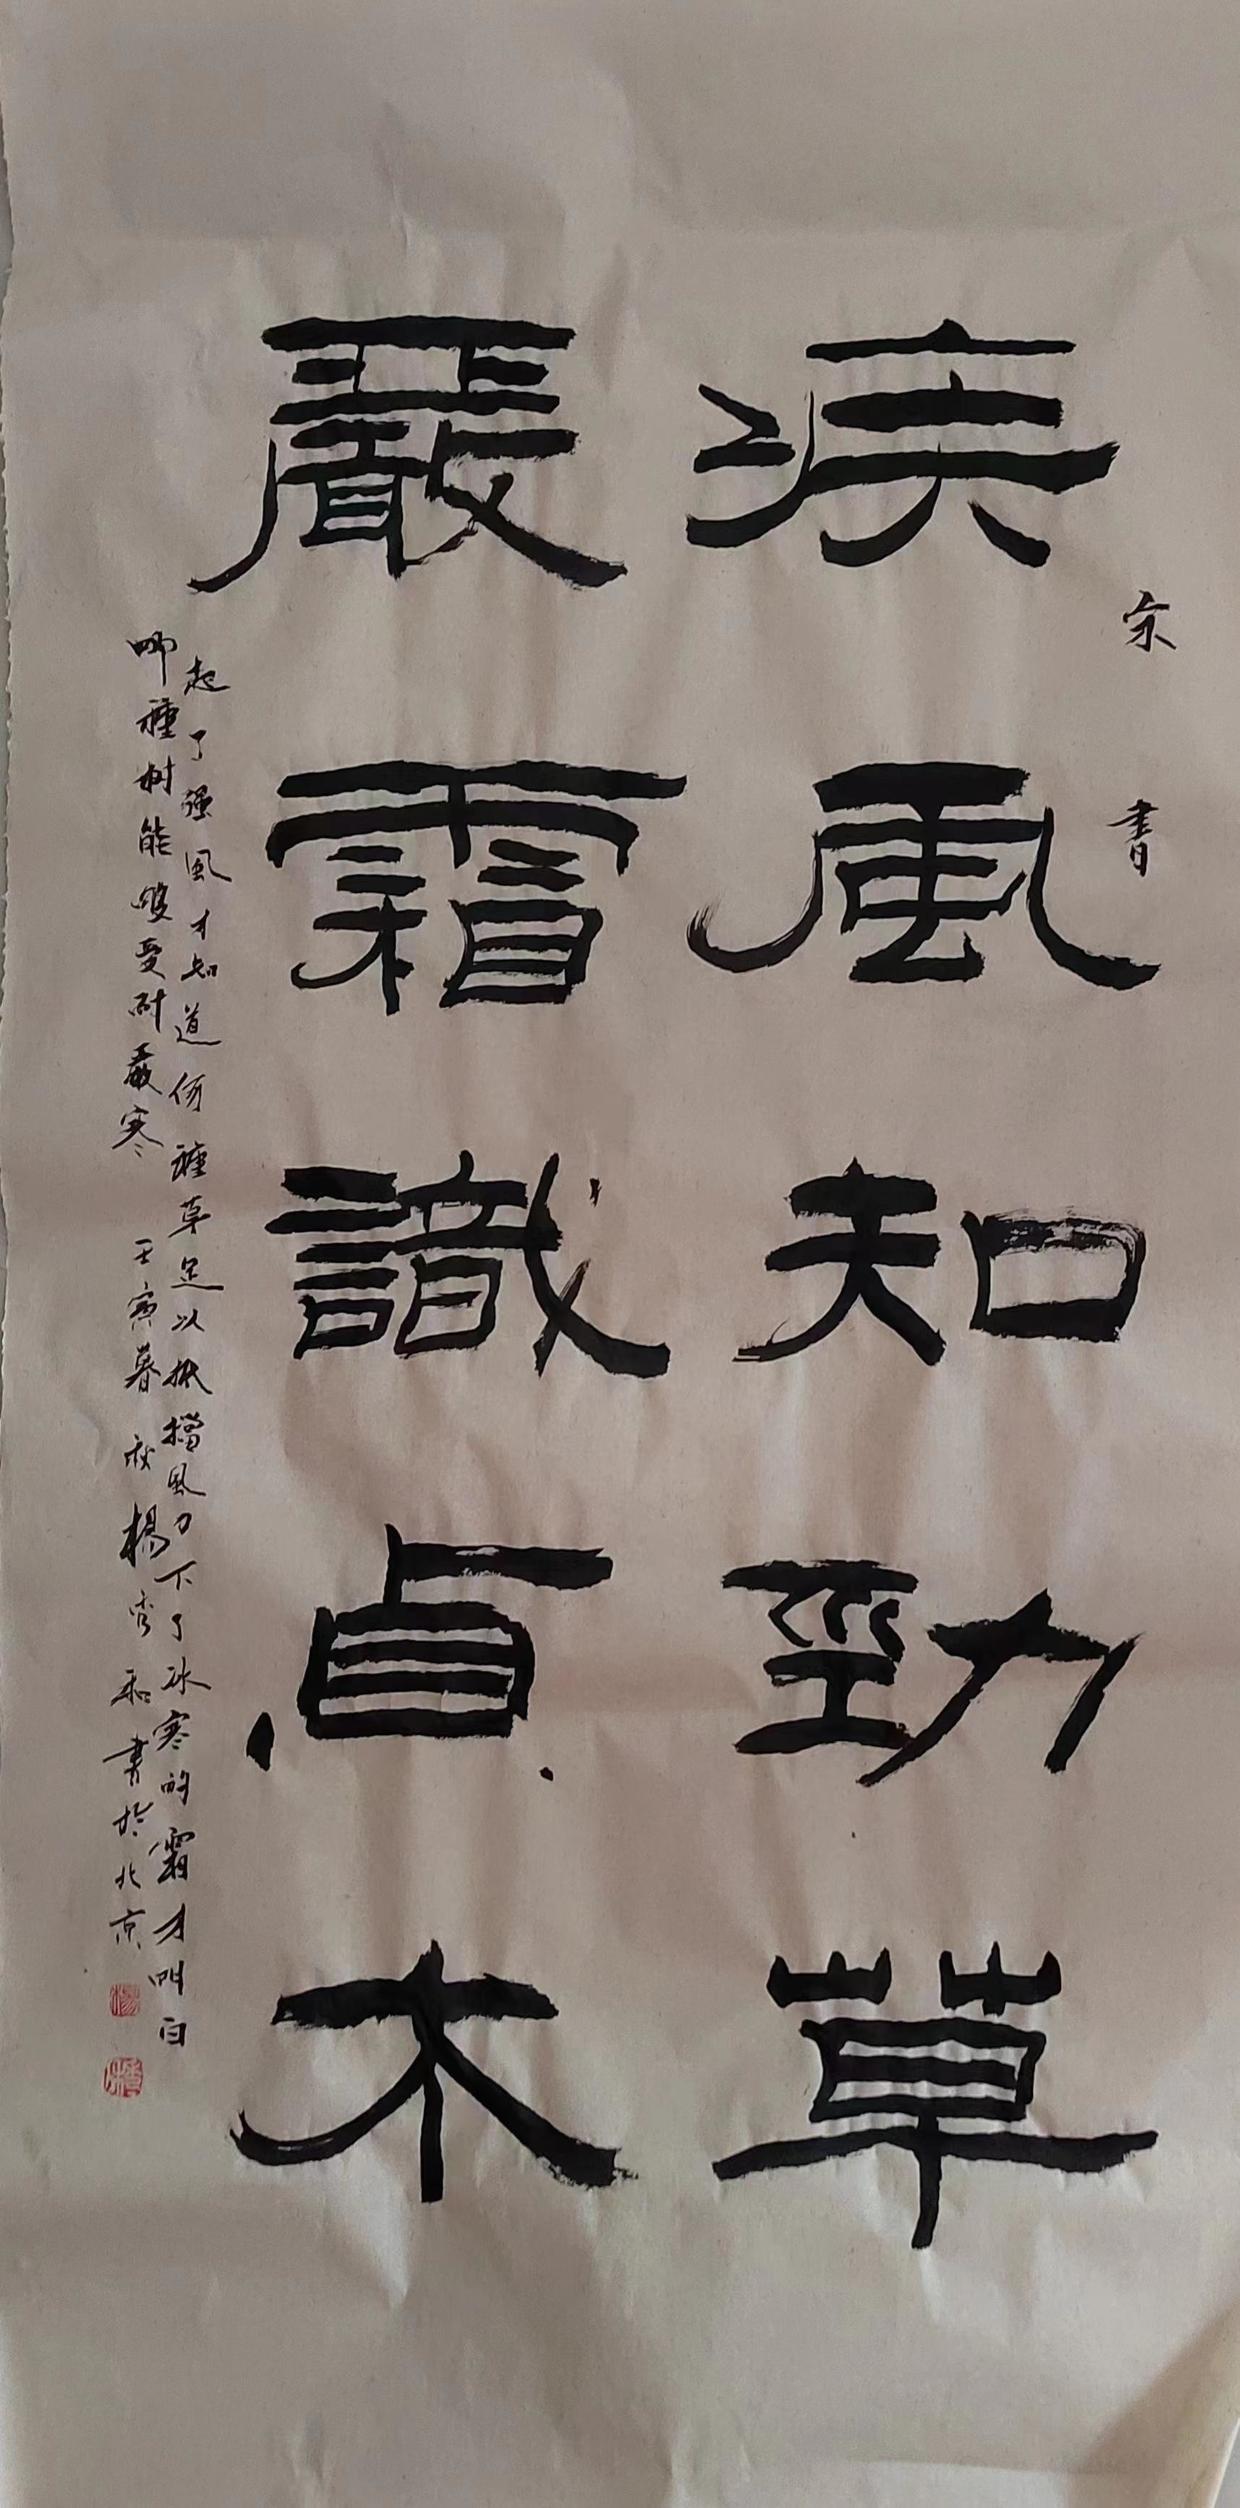 宋書
疾風知勁草
嚴霜識貞木
起了強風才知道何種草足以抵擋風力下了冰寒的霜才明白
哪種樹能够受耐嚴寒 壬寅暮秋楊秀和書於北京